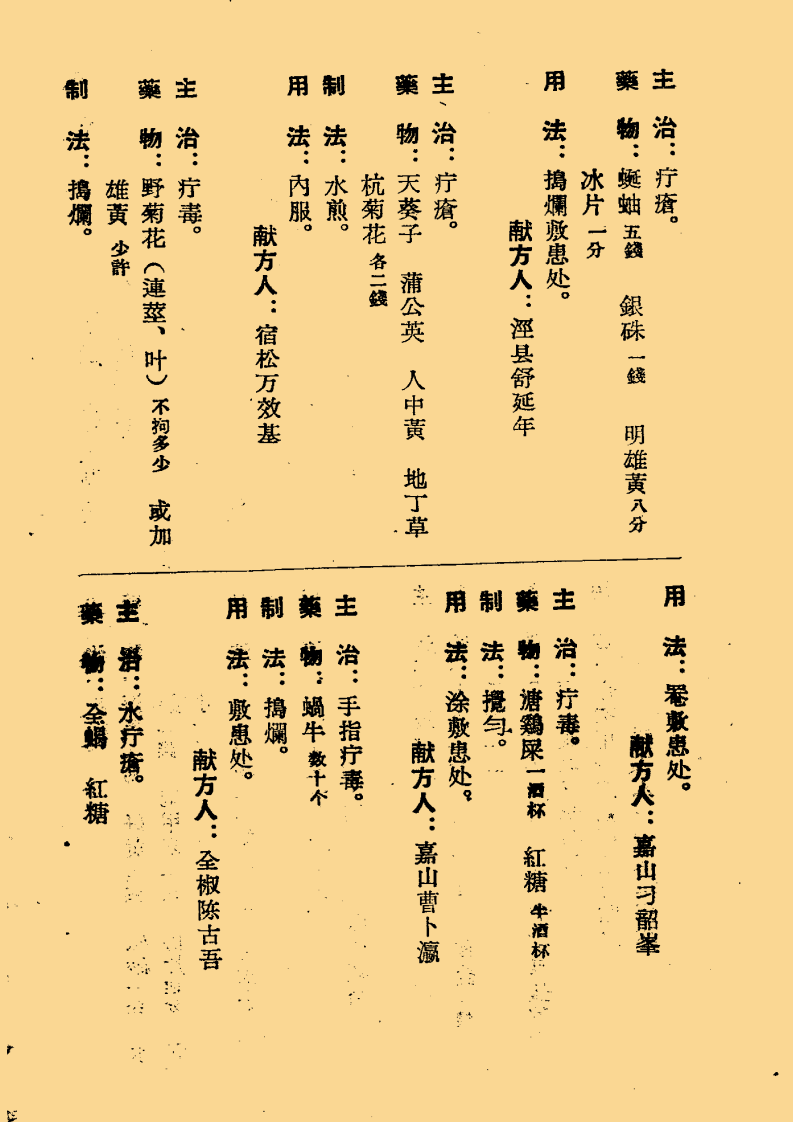 主　治：疔瘡。
藥　物：蜒蚰五錢　銀硃一錢　明雄黃八分
冰片一分
用　法：搗爛敷患处。
献方人：涇县舒延年
主　治：疔瘡。
藥　物：天葵子　蒲公英　人中黃　地丁草
杭菊花各二錢
制　法：水煎。
用　法：內服。
献方人：宿松万效基
主　治：疔毒。
藥　物：野菊花（連莖、叶）不拘多少　或加
雄黃少許
制　法：搗爛。
用　法：罨敷患处。
献方人：嘉山刁韶峯
主　治：疔毒。
藥　物：溏鷄屎一酒杯　紅糖半酒杯
制　法：攪匀。
用　法：涂敷患处。
献方人：嘉山曹卜瀛
主　治：手指疔毒。
藥　物：蝸牛数十个
制　法：搗爛。
用　法：敷患处。
献方人：全椒陈古吾
主　治：水疔瘡。
藥　物：全蝎　紅糖